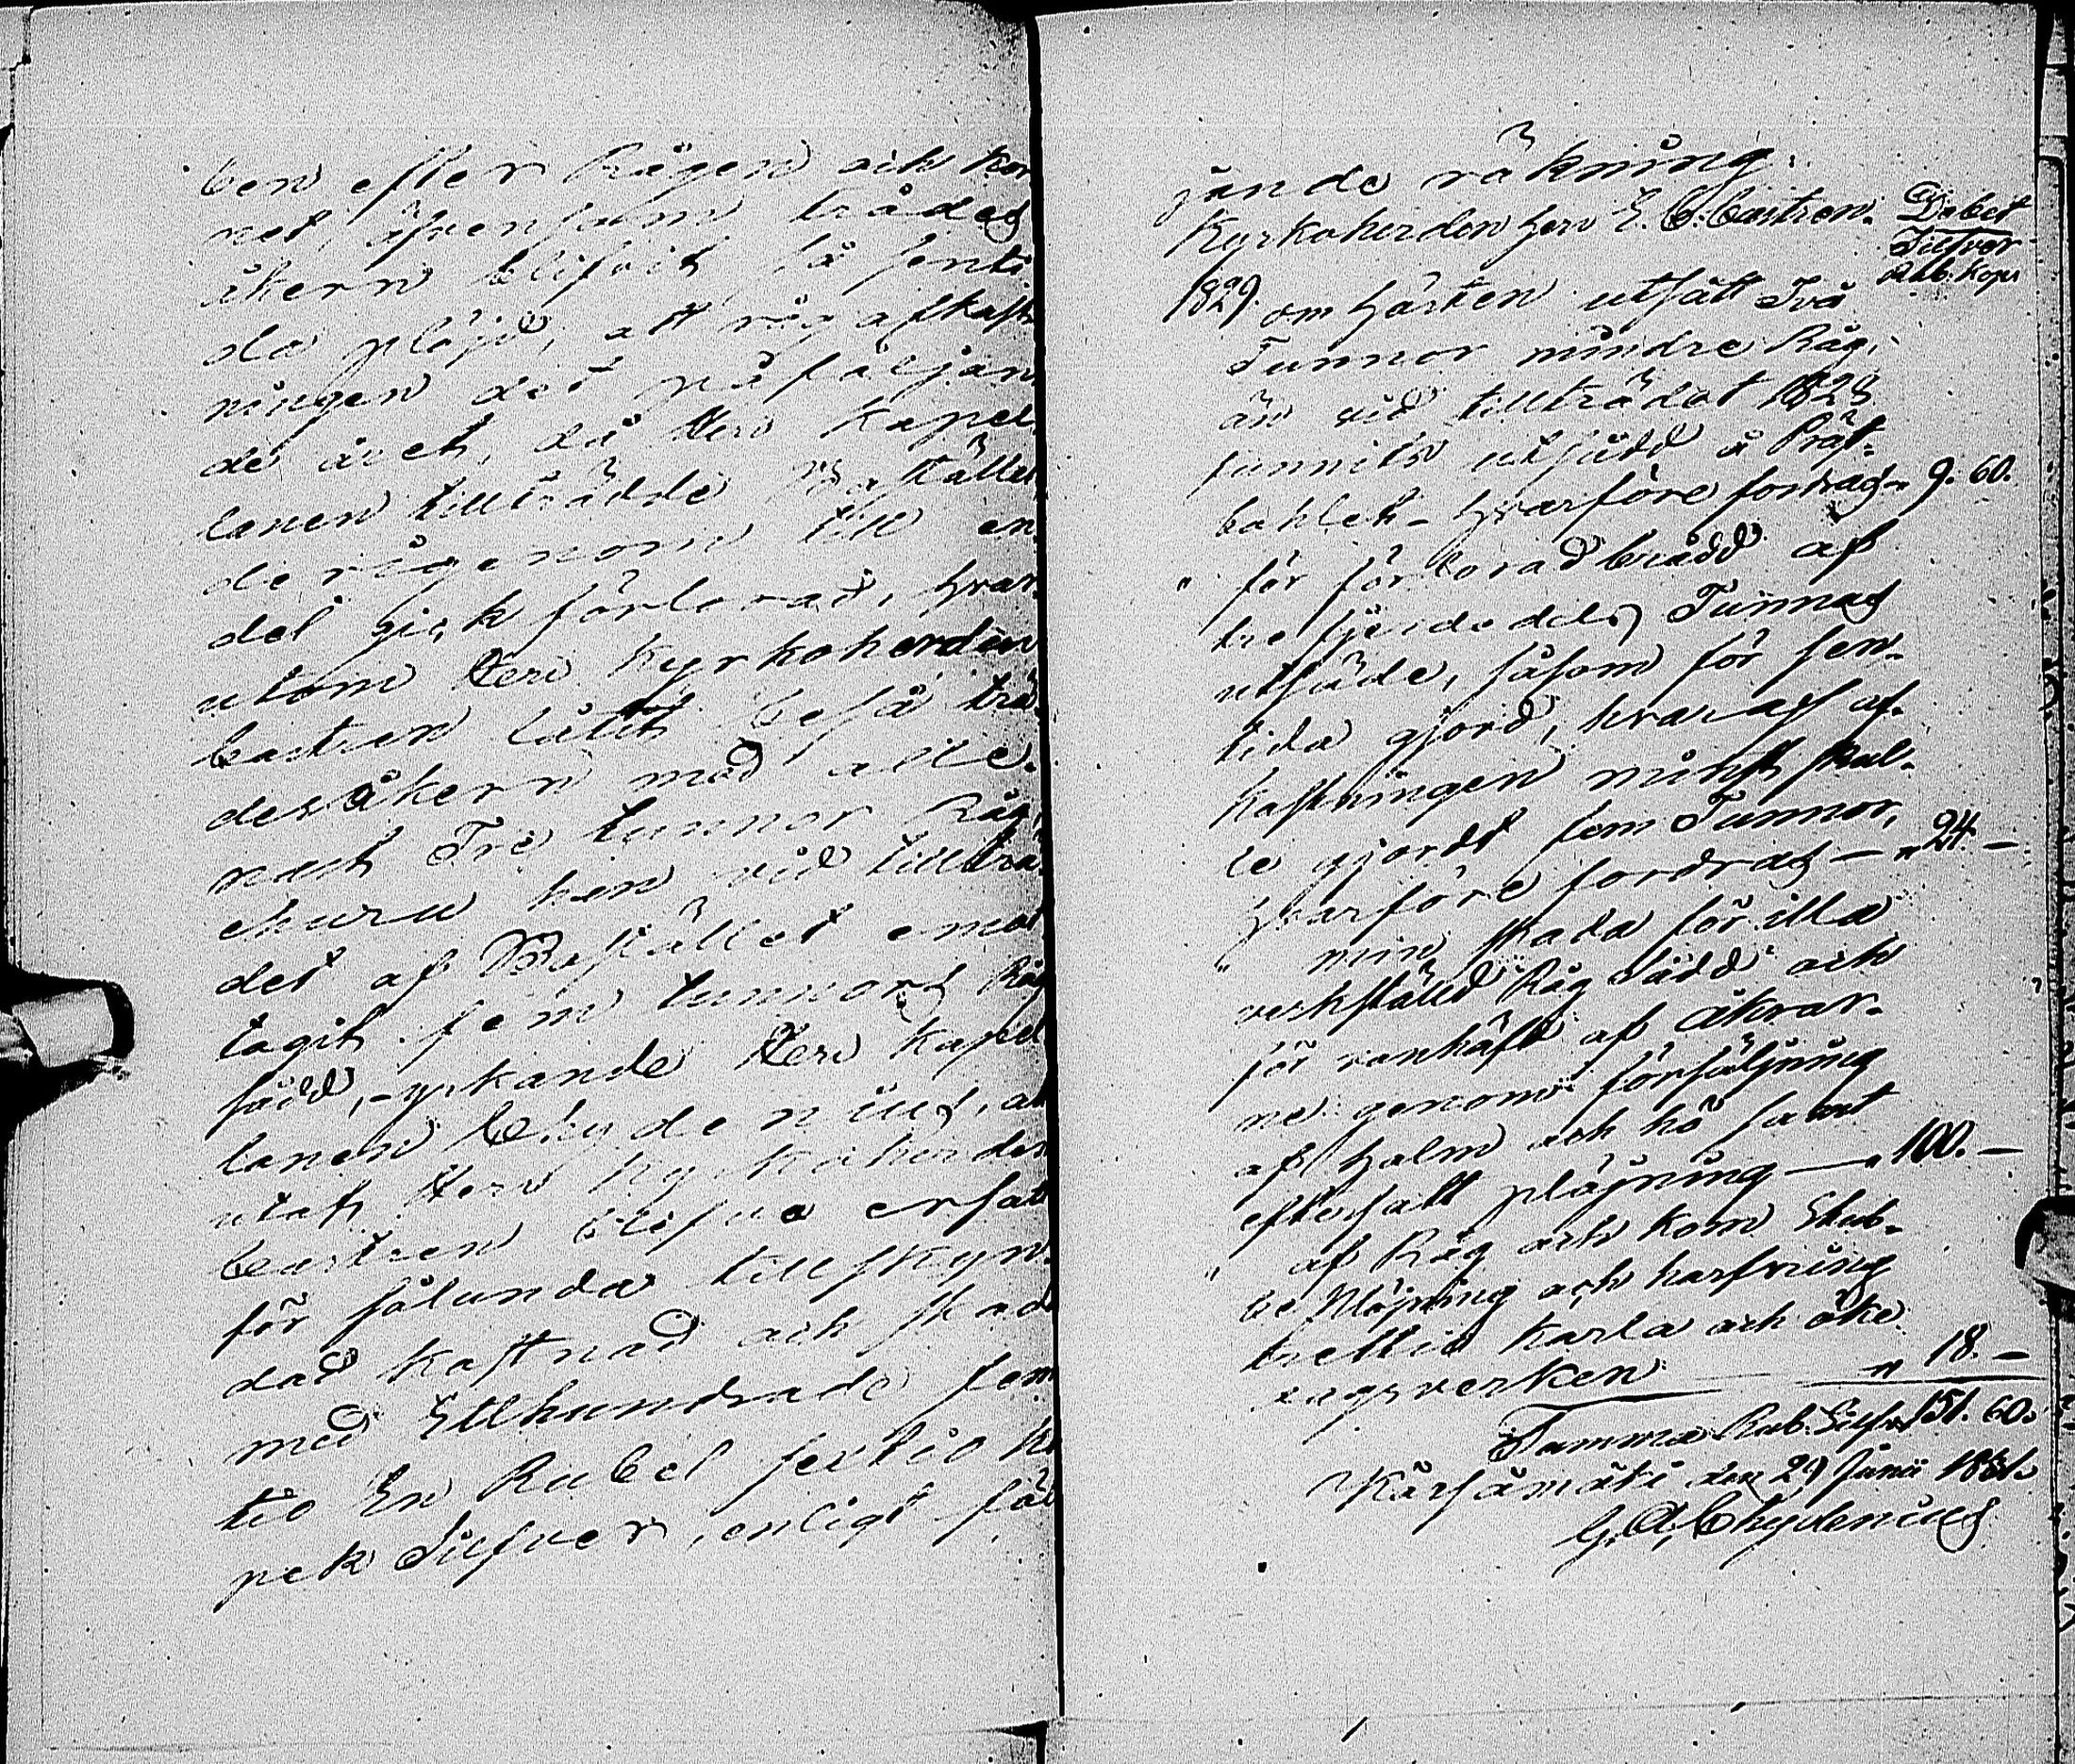 ben efter Rågen och kor
net, äfvensom trädes
åkern blifvit så senti
da plöjd, att rög afkast
ningen det påföljan
de året, då Herr Kapel
lanen tillträdde Bostället
derigenom till en
del gick förlorad, hvar
utom Herr Kyrkoherden
Castren låtit beså trä
desåkern med alle-
nast Tre tunnor Råg,
ehuru han vid tillträ
det af Bostället emot
tagit fem tunnors Råg
sådd, - yrkande Herr Kapel
lanen Chydenius, att
utaf Herr Kyrkoherden
Castren blifva ersatt
för sålunda tillskyn
dad kostnad och skada
med Etthundrade fem
tio En Rubel sextio Ko
pek Silfver, enligt föl
jande räkning:
Kyrkoherden Herr E. C. Castren. Debet
Silfver
Rub. Kop.
1829. om hösten utsått Två
Tunnor mindre Råg,
än vid tillträdet 1828
funnits utsådd å Präst-
bohlet - hvarföre fordras " 9. 60.
" för förlorad brådd af
tre fjerdedels Tunnas
utsäde, såsom för sen-
tida gjord, hvaraf af-
kastningen minst skul-
le gjordt fem Tunnor,
hvarföre fordras — " 24. —
" min skada för illa
verkställd Råg sådd och
för vanhäfd af åkrar-
ne genom försäljning
af halm och hö samt
eftersatt plöjning — " 100. —
" af Råg och korn Stub-
be Plöjning och harfning
trettio karla och öke
dagsverken — " 18. —
Summa Rub. Silfver 151. 60.
Kärsämäki den 29 Junii 1831.
G. A. Chydenius